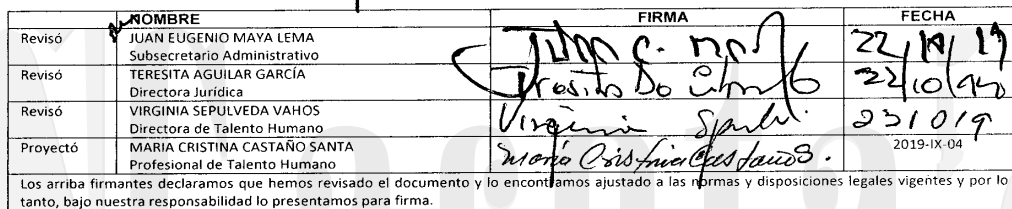 NOMBRE FIRMA FECHA
Revisó JUAN EUGENIO MAYA LEMA
Subsecretario Administrativo
Revisó TERESITA AGUILAR GARCÍA 22/10/
Directora Jurídica
Revisó VIRGINIA SEPULVEDA VAHOS Virginia
Directora de Talento Humano
Proyectó MARIA CRISTINA CASTAÑO SANTA Maria Cristina Castaño S. 2019-IX-04
Profesional de Talento Humano
Los arriba firmantes declaramos que hemos revisado el documento y lo encontramos ajustado a las normas y disposiciones legales vigentes y por lo
tanto, bajo nuestra responsabilidad lo presentamos para firma.